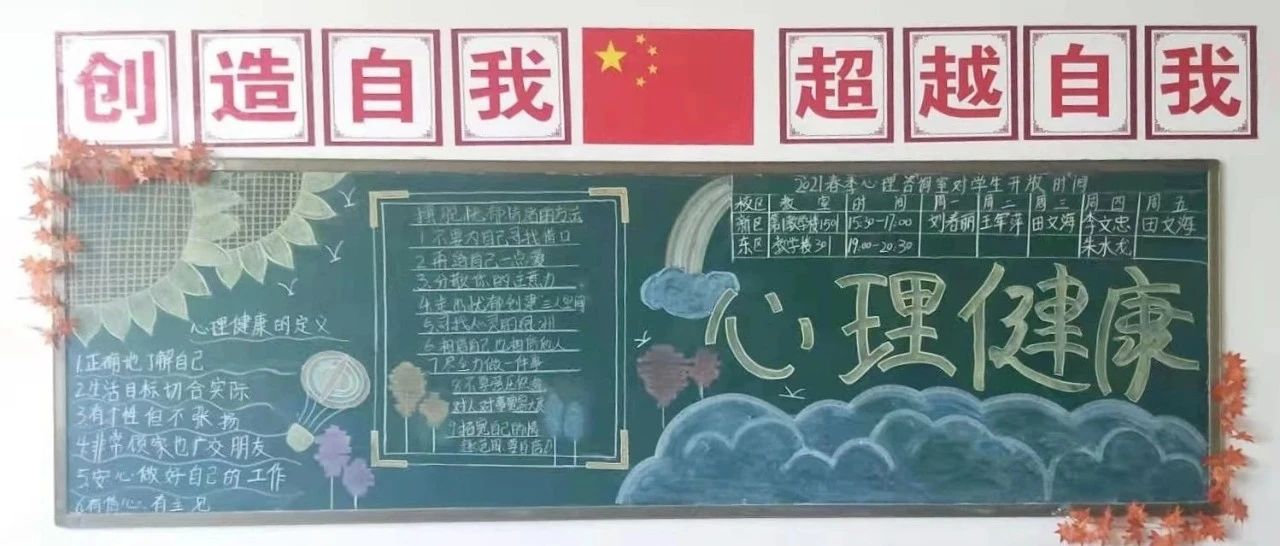 创造自我 超越自我
心理健康的定义
1.正确地了解自己
2.生活目标切合实际
3.有个性但不张扬
4.非常顾家也广交朋友
5.安心做好自己的工作
6.有信心.有主见
摆脱忧郁情绪的方法
1.不要为自己寻找借口
2.再给自己一点爱
3.分散你的注意力
4.走出忧郁创建三人空间
5.寻找人
6.相信自己也相信他人
7.尽全力做一件事
8.不要
对人对事宽
9.拓宽自己的情
趣范围 要自信心
2021春季心理咨询室对学生开放时间
校区 教室 时间 周一 周二 周三 周四 周五
新区 第1教学楼150 15:30-17:00 刘春丽 王军萍 田文海 李文忠 田文海
东区 教学楼301 19:00-20:30 朱水龙
心理健康